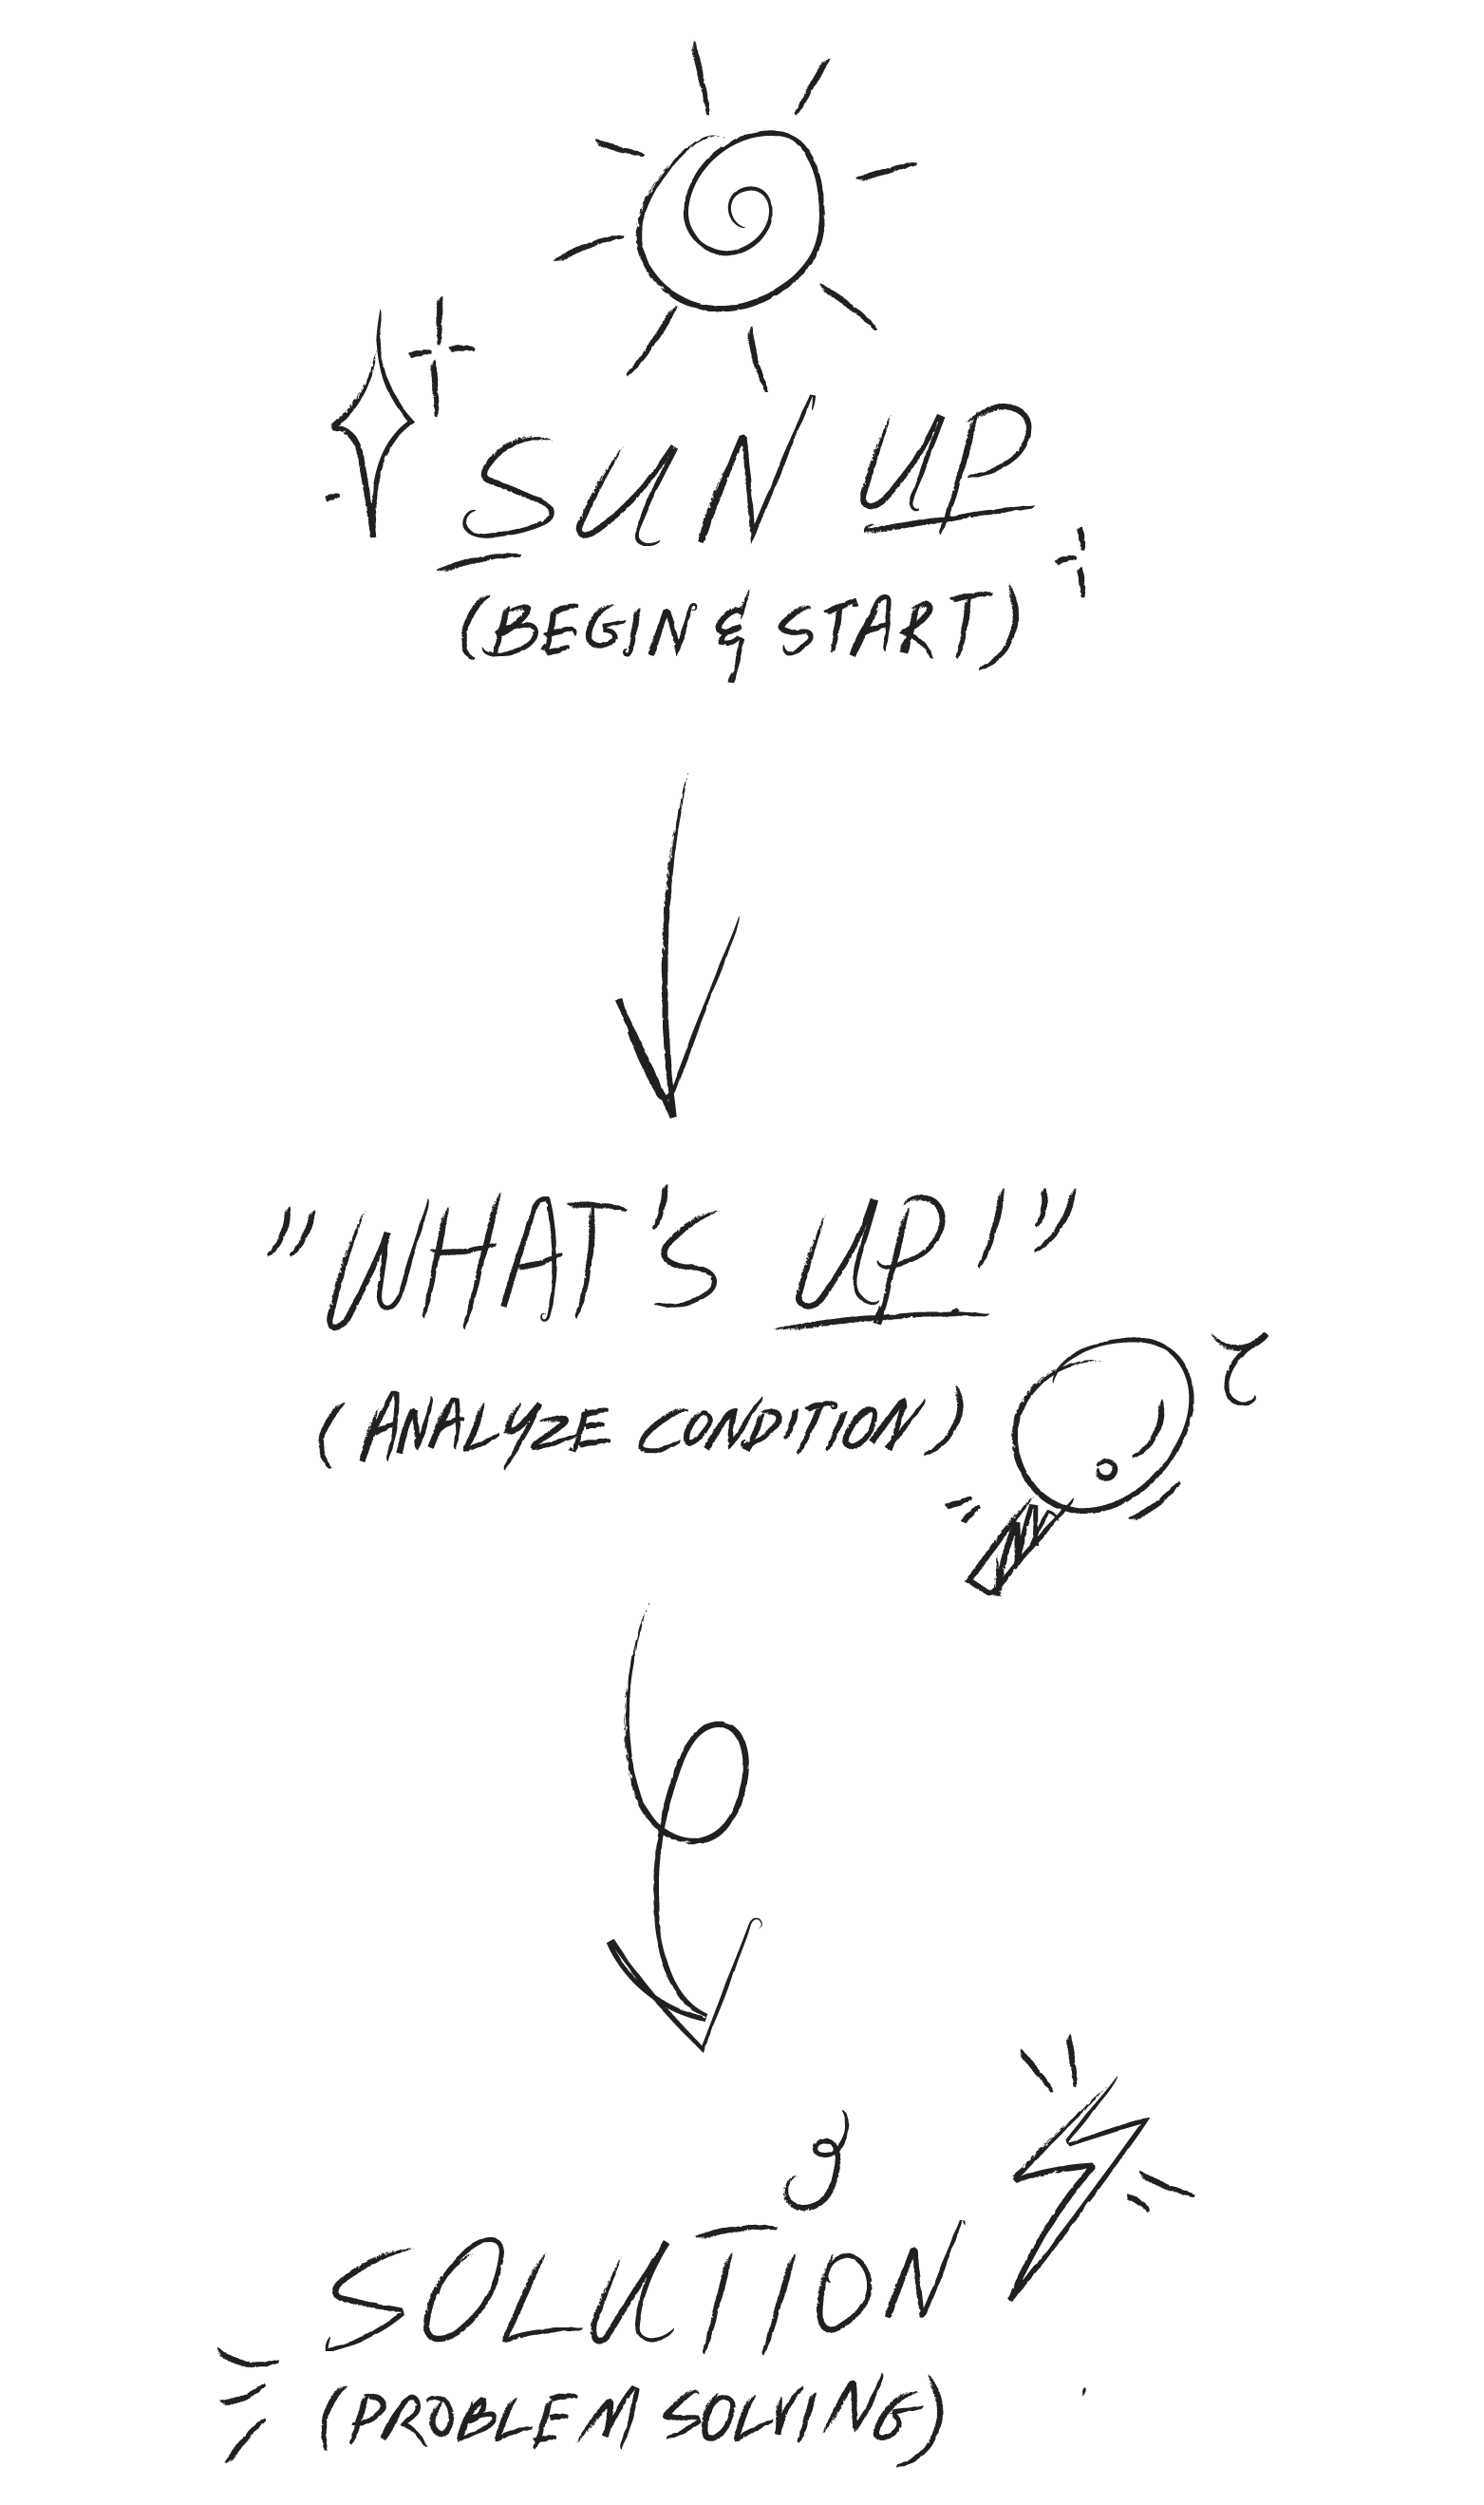 SUN UP
(BEGIN & START)
"WHAT'S UP!"
(ANALYZE CONDITION)
SOLUTION
(PROBLEM SOLVING)